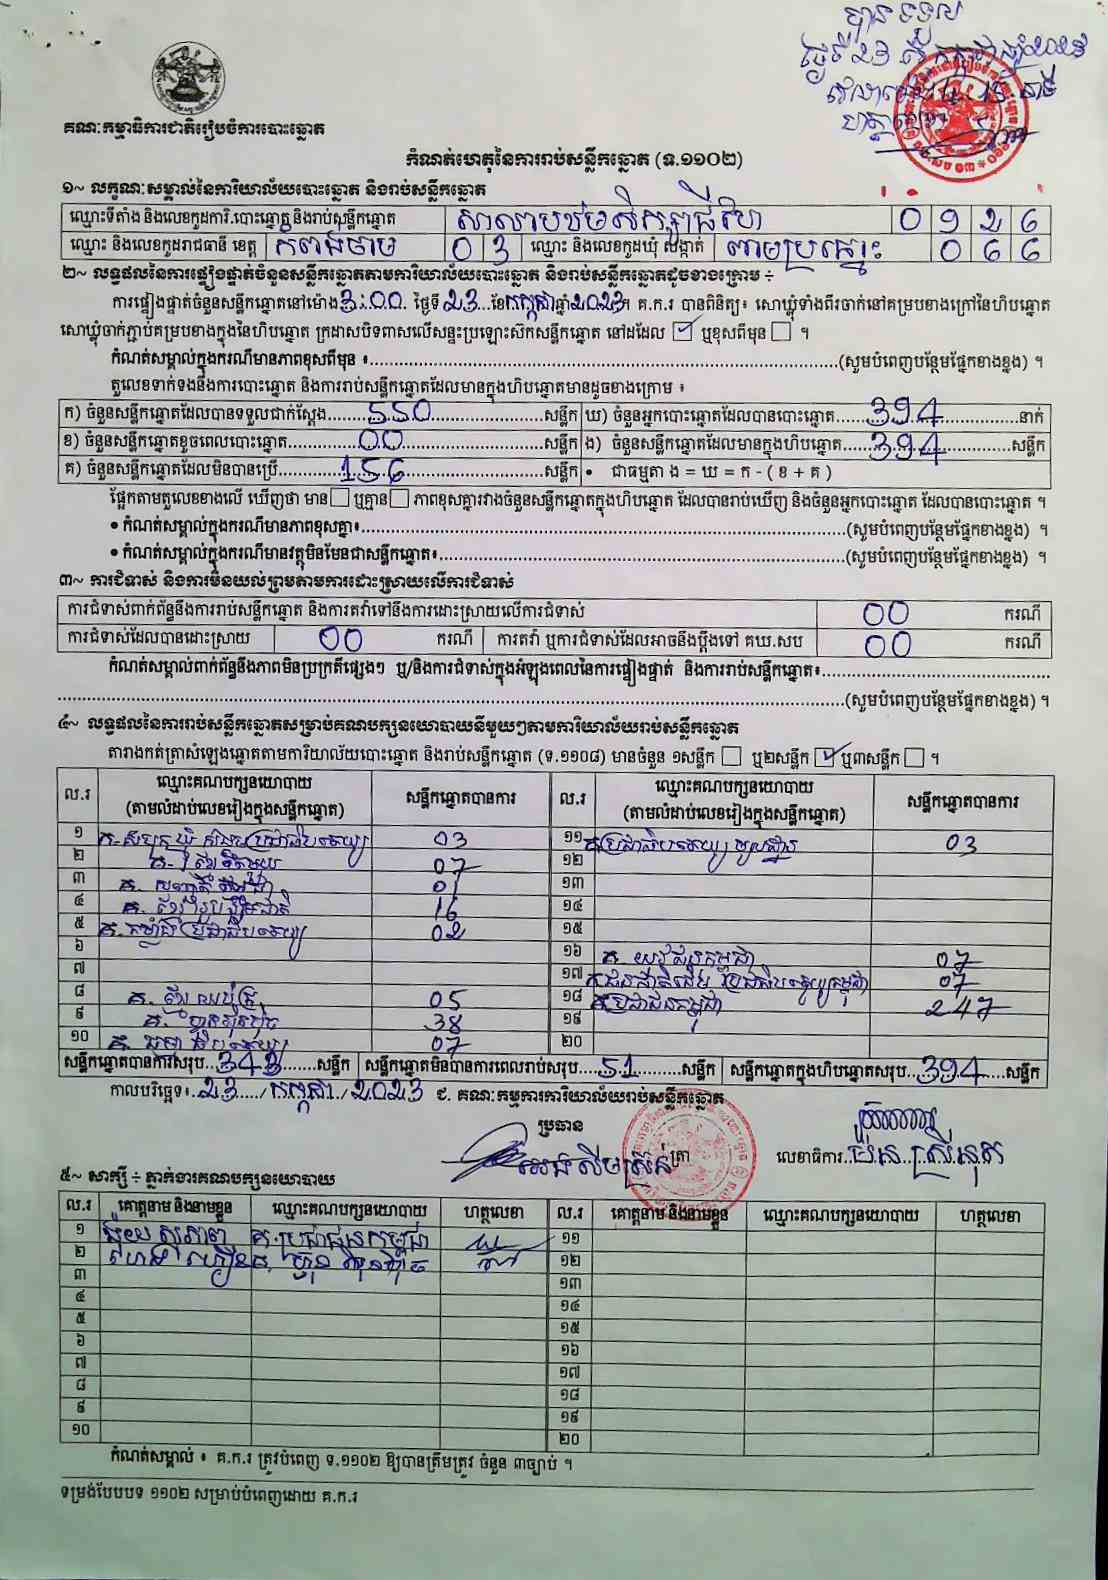 បានទទួល
ថ្ងៃទី២៣
គណៈកម្មាធិការជាតិរៀបចំការបោះឆ្នោត
កំណត់ហេតុនៃការរាប់សន្លឹកឆ្នោត (ទ.១១០២)
១~ លក្ខណៈសម្គាល់នៃការិយាល័យបោះឆ្នោត និងរាប់សន្លឹកឆ្នោត
ឈ្មោះទីតាំង និងលេខកូដការិ.បោះឆ្នោត និងរាប់សន្លឹកឆ្នោត 0 9 2 6
ឈ្មោះ និងលេខកូដរាជធានី ខេត្ត កំពង់ចាម 0 3 ឈ្មោះ និងលេខកូដឃុំ សង្កាត់ ពាមប្រធ្នោះ 0 6 6
២~ លទ្ធផលនៃការផ្ទៀងផ្ទាត់ចំនួនសន្លឹកឆ្នោតតាមការិយាល័យបោះឆ្នោត និងរាប់សន្លឹកឆ្នោតដូចខាងក្រោម ÷
ការផ្ទៀងផ្ទាត់ចំនួនសន្លឹកឆ្នោតនៅម៉ោង 3:00 ថ្ងៃទី 23 ខែ កក្កដា ឆ្នាំ 2023។ គ.ក.រ បានពិនិត្យ៖ សោឃ្លុំទាំងពីរចាក់នៅគម្របខាងក្រៅនៃហិបឆ្នោត
សោឃ្លុំចាក់ភ្ជាប់គម្របខាងក្នុងនៃហិបឆ្នោត ក្រដាសបិទពាសលើសន្ទះប្រឡោះស៊កសន្លឹកឆ្នោត នៅដដែល ☑ ឬខុសពីមុន ☐ ។
កំណត់សម្គាល់ក្នុងករណីមានភាពខុសពីមុន ៖ (សូមបំពេញបន្ថែមផ្នែកខាងខ្នង) ។
តួលេខទាក់ទងនឹងការបោះឆ្នោត និងការរាប់សន្លឹកឆ្នោតដែលមានក្នុងហិបឆ្នោតមានដូចខាងក្រោម ៖
ក) ចំនួនសន្លឹកឆ្នោតដែលបានទទួលជាក់ស្តែង 550 សន្លឹក ឃ) ចំនួនអ្នកបោះឆ្នោតដែលបានបោះឆ្នោត 394 នាក់
ខ) ចំនួនសន្លឹកឆ្នោតខូចពេលបោះឆ្នោត 00 សន្លឹក ង) ចំនួនសន្លឹកឆ្នោតដែលមានក្នុងហិបឆ្នោត 394 សន្លឹក
គ) ចំនួនសន្លឹកឆ្នោតដែលមិនបានប្រើ 156 សន្លឹក • ជាធម្មតា ង = ឃ = ក - ( ខ + គ )
ផ្អែកតាមតួលេខខាងលើ ឃើញថា មាន ☐ ឬគ្មាន ☐ ភាពខុសគ្នារវាងចំនួនសន្លឹកឆ្នោតក្នុងហិបឆ្នោត ដែលបានរាប់ឃើញ និងចំនួនអ្នកបោះឆ្នោត ដែលបានបោះឆ្នោត ។
• កំណត់សម្គាល់ក្នុងករណីមានភាពខុសគ្នា៖ (សូមបំពេញបន្ថែមផ្នែកខាងខ្នង) ។
• កំណត់សម្គាល់ក្នុងករណីមានវត្ថុមិនមែនជាសន្លឹកឆ្នោត៖ (សូមបំពេញបន្ថែមផ្នែកខាងខ្នង) ។
៣~ ការជំទាស់ និងការមិនយល់ព្រមតាមការដោះស្រាយលើការជំទាស់
ការជំទាស់ពាក់ព័ន្ធនឹងការរាប់សន្លឹកឆ្នោត និងការតវ៉ាទៅនឹងការដោះស្រាយលើការជំទាស់ 00 ករណី
ការជំទាស់ដែលបានដោះស្រាយ 00 ករណី ការតវ៉ា ឬការជំទាស់ដែលអាចនឹងប្តឹងទៅ គឃ.សប 00 ករណី
កំណត់សម្គាល់ពាក់ព័ន្ធនឹងភាពមិនប្រក្រតីផ្សេងៗ ឬ/និងការជំទាស់ក្នុងអំឡុងពេលនៃការផ្ទៀងផ្ទាត់ និងការរាប់សន្លឹកឆ្នោត៖
(សូមបំពេញបន្ថែមផ្នែកខាងខ្នង) ។
៤~ លទ្ធផលនៃការរាប់សន្លឹកឆ្នោតសម្រាប់គណបក្សនយោបាយនីមួយៗតាមការិយាល័យរាប់សន្លឹកឆ្នោត
តារាងកត់ត្រាសំឡេងឆ្នោតតាមការិយាល័យបោះឆ្នោត និងរាប់សន្លឹកឆ្នោត (ទ.១១០៨) មានចំនួន ១សន្លឹក ☐ ឬ២សន្លឹក ☑ ឬ៣សន្លឹក ☐ ។
ល.រ ឈ្មោះគណបក្សនយោបាយ (តាមលំដាប់លេខរៀងក្នុងសន្លឹកឆ្នោត) សន្លឹកឆ្នោតបានការ ល.រ ឈ្មោះគណបក្សនយោបាយ (តាមលំដាប់លេខរៀងក្នុងសន្លឹកឆ្នោត) សន្លឹកឆ្នោតបានការ
១ 03 ១១ គ.ប្រជាធិបតេយ្យមូលដ្ឋាន 03
២ គ. ខ្មែរតែមួយ 07 ១២
៣ 01 ១៣
៤ គ. ខ្មែររួបរួមជាតិ 16 ១៤
៥ គ. កម្លាំងប្រជាធិបតេយ្យ 02 ១៥
៦ ១៦ គ. យុវជនកម្ពុជា 07
៧ ១៧ គ.ជនជាតិដើមប្រជាធិបតេយ្យកម្ពុជា 07
៨ 05 ១៨ គ.ប្រជាជនកម្ពុជា 247
៩ គ. ហ្វ៊ុនស៊ិនប៉ិច 38 ១៩
១០ គ. ធម្មាធិបតេយ្យ 07 ២០
សន្លឹកឆ្នោតបានការសរុប 343 សន្លឹក សន្លឹកឆ្នោតមិនបានការពេលរាប់សរុប 51 សន្លឹក សន្លឹកឆ្នោតក្នុងហិបឆ្នោតសរុប 394 សន្លឹក
កាលបរិច្ឆេទ៖ 23 / កក្កដា / 2023 ជ. គណៈកម្មការការិយាល័យរាប់សន្លឹកឆ្នោត
ប្រធាន
ត្រា លេខាធិការ ស្រីនុត
៥~ សាក្សី ÷ ភ្នាក់ងារគណបក្សនយោបាយ
ល.រ គោត្តនាម និងនាមខ្លួន ឈ្មោះគណបក្សនយោបាយ ហត្ថលេខា ល.រ គោត្តនាម និងនាមខ្លួន ឈ្មោះគណបក្សនយោបាយ ហត្ថលេខា
១ គ.ប្រជាជនកម្ពុជា ១១
២ ១២
៣ ១៣
៤ ១៤
៥ ១៥
៦ ១៦
៧ ១៧
៨ ១៨
៩ ១៩
១០ ២០
កំណត់សម្គាល់ ៖ គ.ក.រ ត្រូវបំពេញ ទ.១១០២ ឱ្យបានត្រឹមត្រូវ ចំនួន ៣ច្បាប់ ។
ទម្រង់បែបបទ ១១០២ សម្រាប់បំពេញដោយ គ.ក.រ